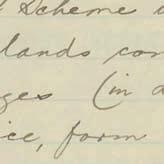 Scheme
lands con
ges (in
ice, form